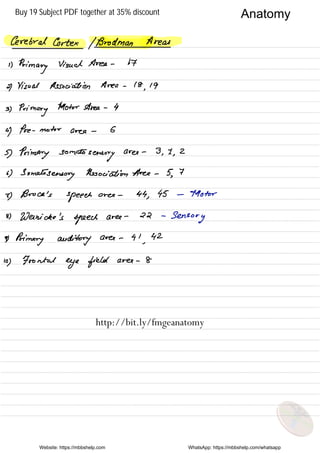 Buy 19 Subject PDF together at 35% discount
Anatomy
Cerebral Cortex / Brodman Areas
1) Primary Visual Area - 17
2) Visual Association Area - 18, 19
3) Primary Motor Area - 4
4) Pre-motor area - 6
5) Primary somatosensory area - 3, 1, 2
6) Somatosensory Association Area - 5, 7
7) Broca's speech area - 44, 45 - Motor
8) Wernicke's speech area - 22 - Sensory
9) Primary auditory area - 41, 42
10) Frontal eye field area - 8
http://bit.ly/fmgeanatomy
Website: https://mbbshelp.com WhatsApp: https://mbbshelp.com/whatsapp